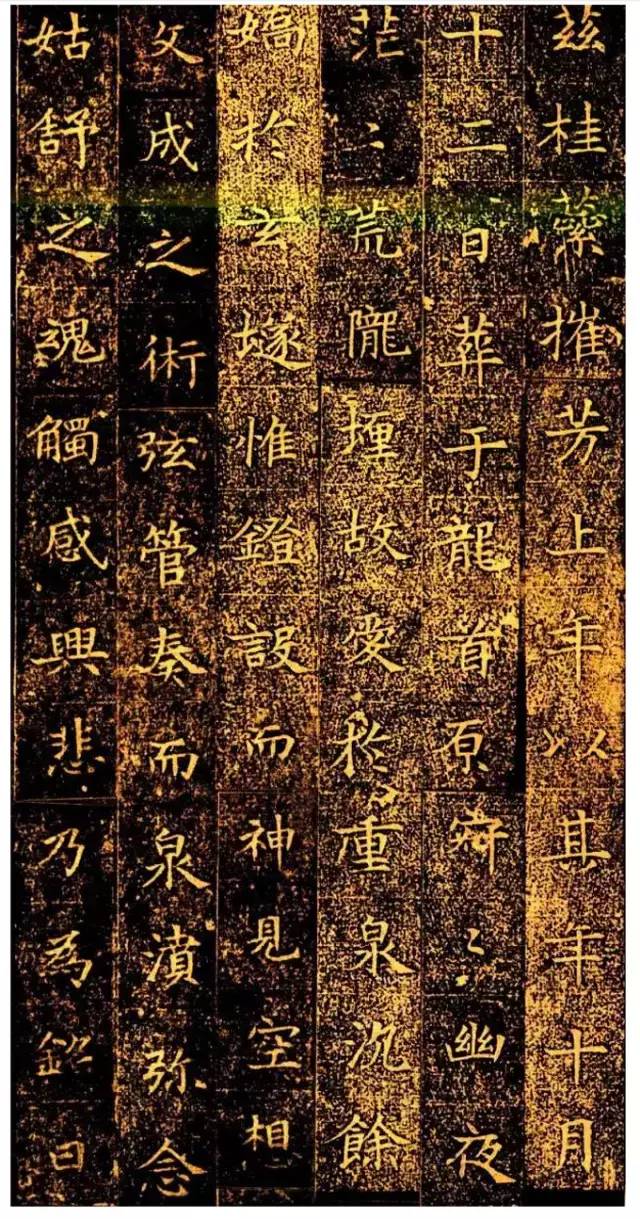 茲桂蘂摧芳上年以其年十月
十二日葬于龍首原寂〻幽夜
茫〻荒隴埋故愛於重泉沉餘
嬌於玄惟鐙設而神見空想
文成之術弦管奏而泉濆弥念
姑舒之魂觸感興悲乃為銘曰